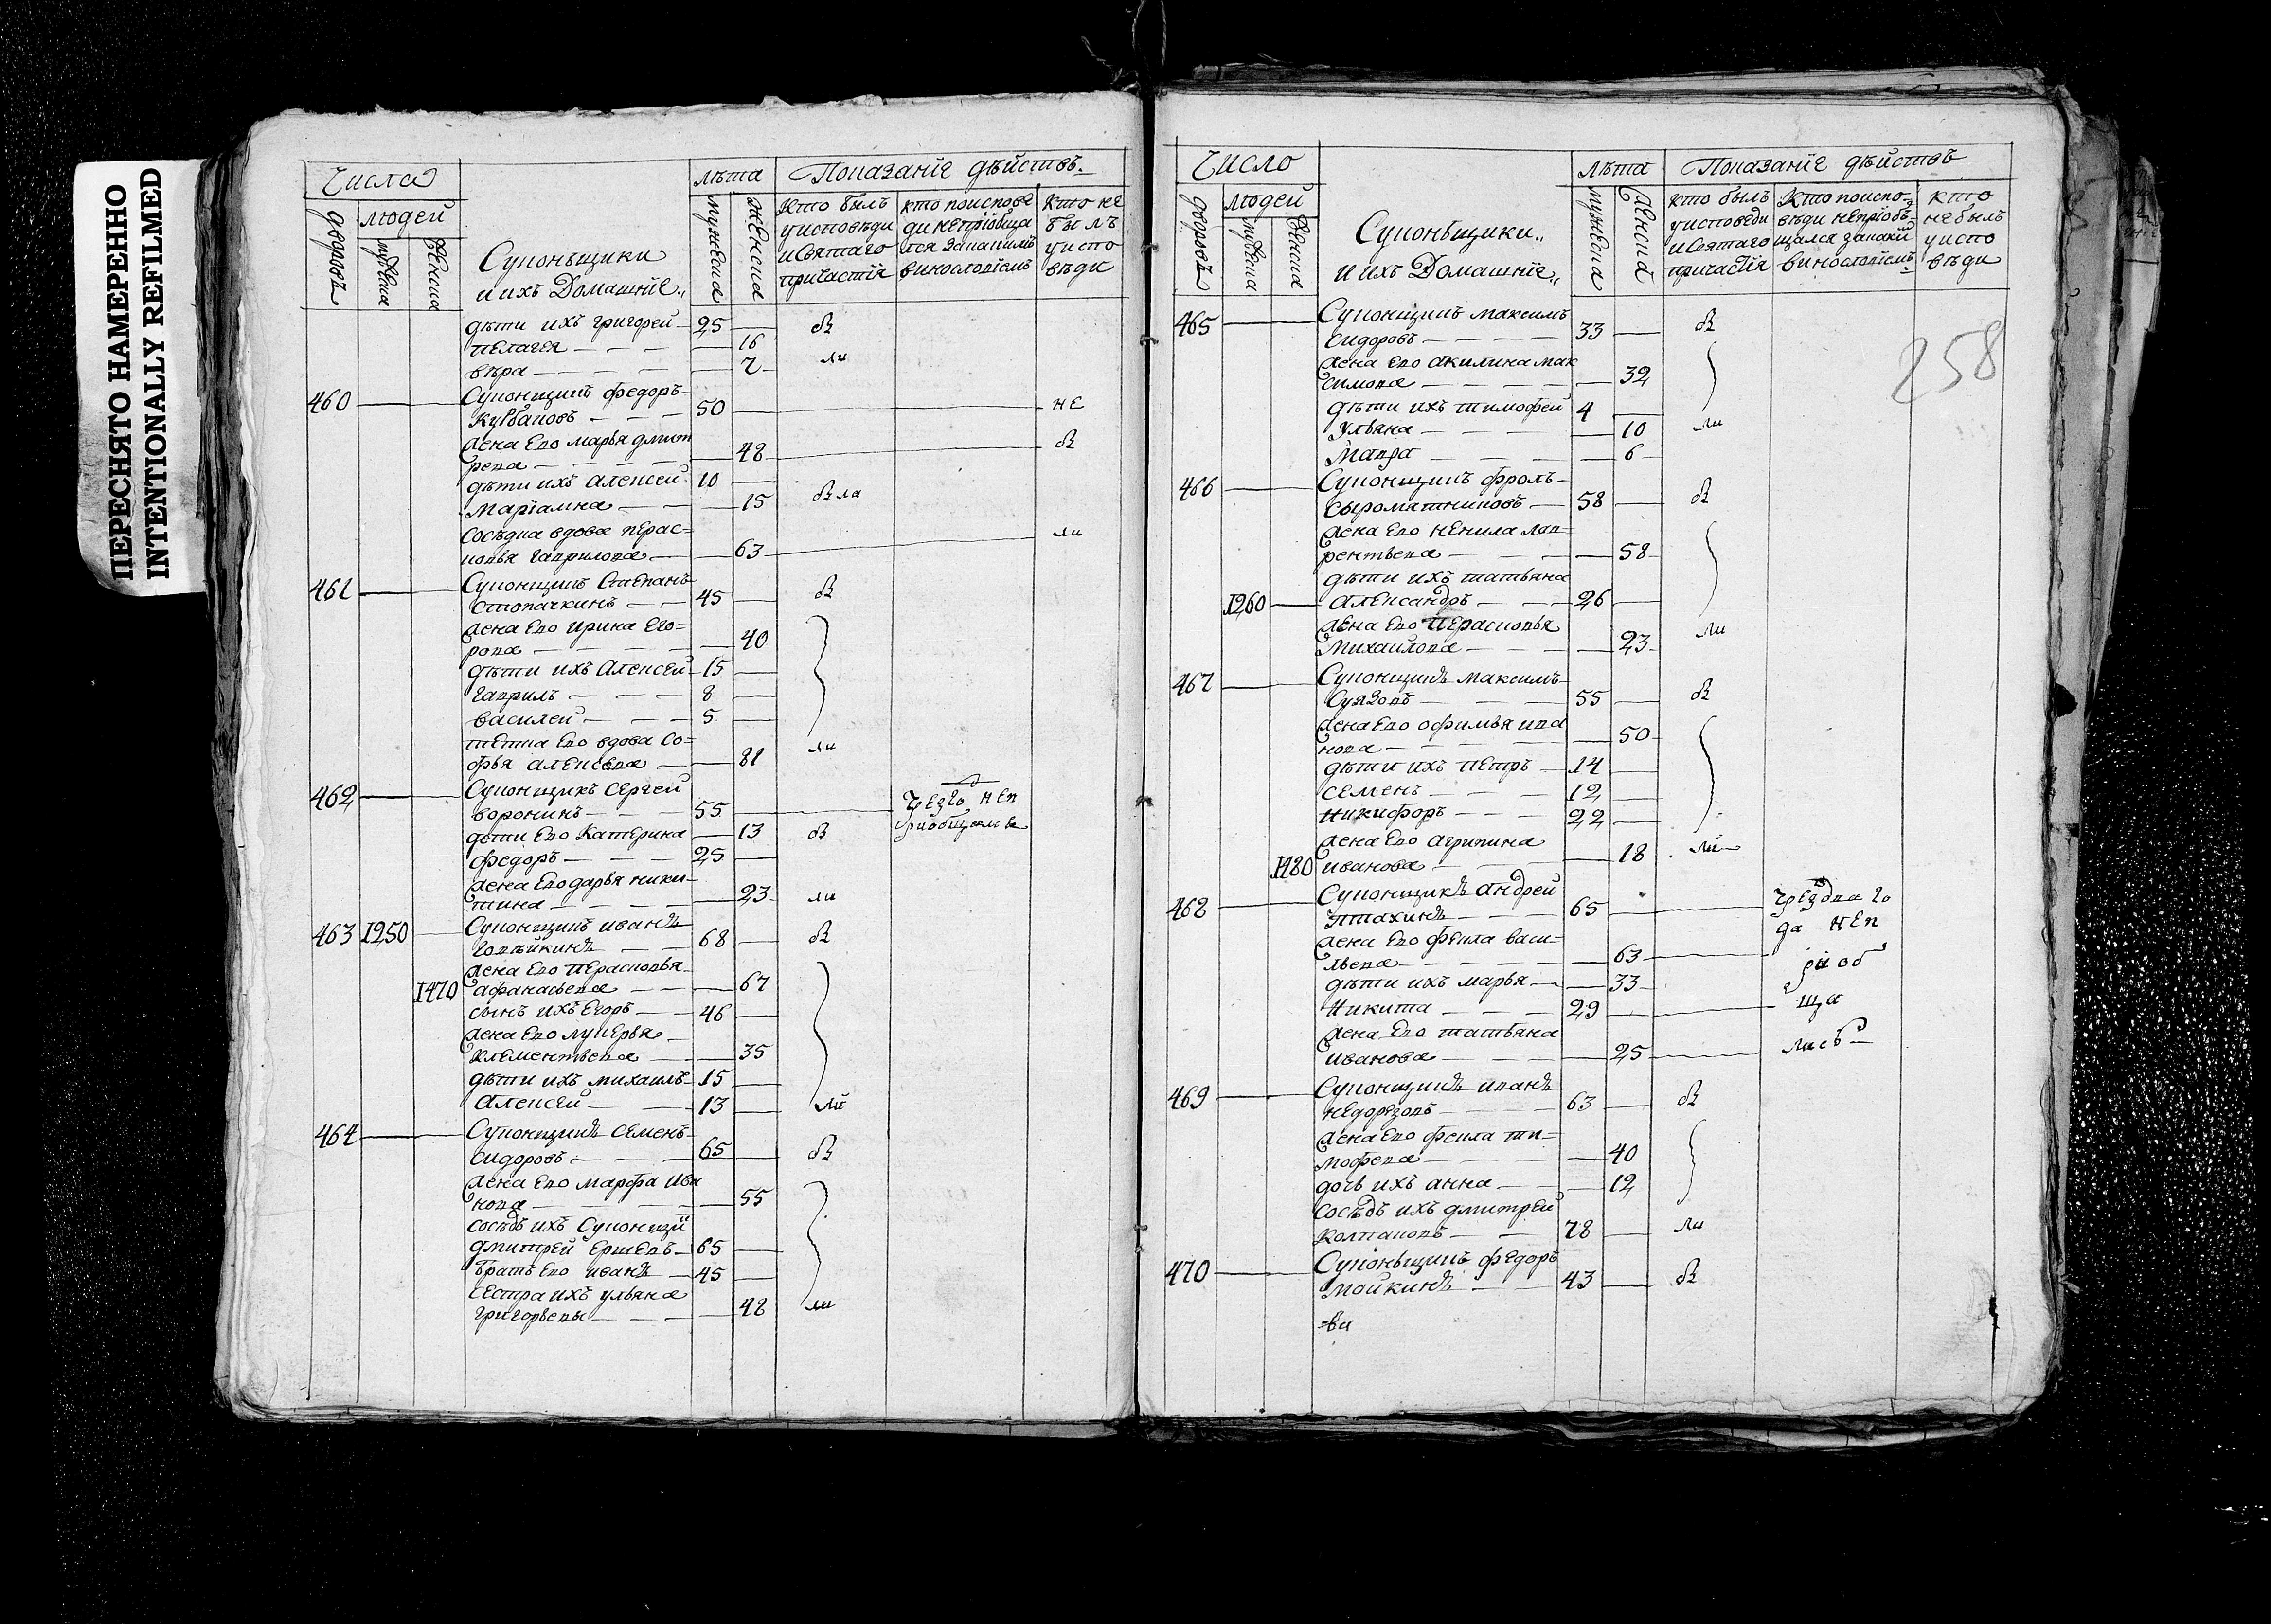 ПЕРЕСНЯТО НАМЕРЕННО
INTENTIONALLY REFILMED
Числа
дворовъ
людей
мужеска
женска
Суконьщики
и ихъ Домашніе
лѣта
мужеска
женска
Показаніе дѣйствъ.
Кто былъ
у исповѣди
и святаго
причастія
кто поиспове
ди непріобща
лся за какимъ
винословіемъ
Кто не
былъ
у испо
вѣди
дѣти ихъ григорей 25 бы
пелагея 16
вѣра 7 ли
460 Суконщикъ федоръ
Курбановъ 50 не
жена его марья дмит
рева 48 бы
дѣти ихъ алексей 10
Маріамна 15 была
сосѣдка вдова перас=
ковья гаврилова 63 ли
461 Суконщикъ Степанъ
стопачкинъ 45 бы
жена его ирина его=
рова 40
дѣти ихъ Алексей 15
гаврилъ 8
василей 5
тетка его вдова со=
фья алексева 81 ли
462 Суконщикъ Сергей
воронинъ 55 неп
ріобщался
дѣти его Катерина 13 бы
федоръ 25
жена его дарья ники=
тина 23 ли
463 1250 Суконщикъ иванъ
голѣйкинъ 68 бы
жена его перасковья
1470 афанасьева 67
сынъ ихъ егоръ 46
жена его лукерья
клементьева 35
дѣти ихъ михаилъ 15
Алексей 13 ли
464 Суконщикъ семенъ
сидоровъ 65 бы
жена его марфа ива
нова 55
сосѣдъ ихъ суконщи
дмитрей ершевъ 65
братъ его иванъ 45
сестра ихъ ульяна
григорьевы 48 ли
Число
дворовъ
людей
мужеска
женска
Суконьщики
и ихъ Домашніе
лѣта
мужеска
женска
Показаніе дѣйствъ
кто былъ
у исповеди
и святаго
причастія
Кто поиспо=
вѣди непріобъ=
щался за какий
винословіемъ
кто
не былъ
у испо
вѣди
258
465 Суконщикъ максимъ
сидоровъ 33 бы
жена его акилина мак
симова 32
дѣти ихъ тимофей 4
Ульяна 10 ли
Мавра 6
466 Суконщикъ фролъ
сыромятниковъ 58 бы
жена его ненила лав=
рентьева 58
дѣти ихъ татьяна
1260 александръ 26
жена его перасковья
михайлова 23 ли
467 Суконщикъ максимъ
55 бы
жена его офимья ива
нова 50
дѣти ихъ петръ 14
семенъ 12
никифоръ 22
жена его агрипина
1480 иванова 18 ли
468 Суконщикъ андрей
птахинъ 65
да неп
жена его фекла васи=
льева 63 ріоб
дѣти ихъ марья 33
никита 29 ща
жена его татьяна
иванова 25 лисъ
469 Суконщикъ иванъ
недорезовъ 63 бы
жена его фекла ти=
мофева 40
дочь ихъ анна 12
сосѣдъ ихъ дмитрей
колпаковъ 78 ли
470 Суконьщикъ федоръ
мойкинъ 43 бы